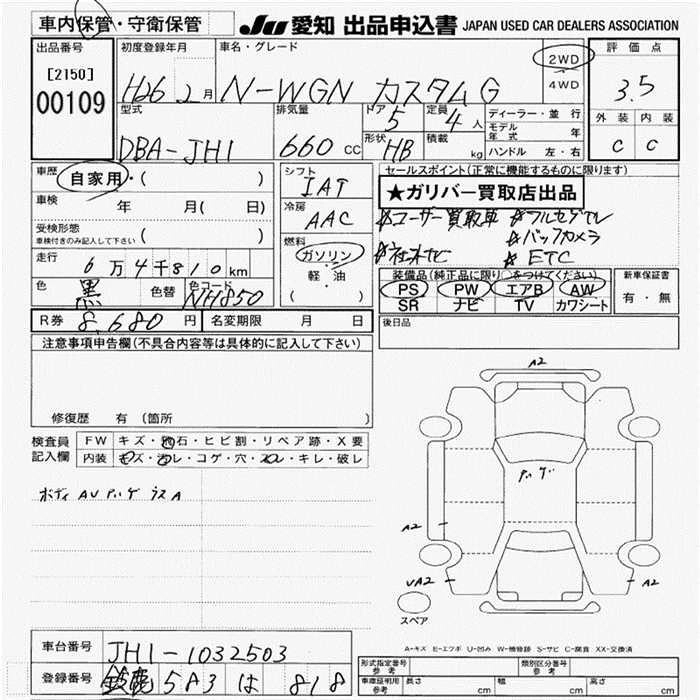 車内保管・守衛保管
JU 愛知 出品申込書 JAPAN USED CAR DEALERS ASSOCIATION
出品番号
[2150]
00109
初度登録年月
H26 2月
車名・グレード
N-WGN カスタムG
2WD
4WD
評価点
3.5
外装 内装
C C
型式
DBA-JH1
排気量
660 cc
ドア
5
形状
HB
定員
4人
積載
kg
ディーラー・並行
モデル年式 年
ハンドル 左・右
車歴
自家用・( )
車検 年 月( 日)
受検形態
車検付きのみ記入して下さい ( )
走行
6万4千810km
色 黒 色替 色コード NH850
R券 8,680円 名変期限 月 日
シフト
IAT
冷房
AAC
燃料
ガソリン
・
軽・油
( )
セールスポイント(正常に機能するものに限ります)
★ガリバー買取店出品
☆ユーザー買取車 ☆フルセグTV
☆バックカメラ
☆社外ナビ ☆ETC
装備品(純正品に限り○をつけてください)
PS PW エアB AW
SR ナビ TV カワシート
新車保証書
有・無
後日品
注意事項申告欄(不具合内容等は具体的に記入して下さい)
修復歴 有(箇所 )
検査員記入欄
FW キズ・飛石・ヒビ割・リペア跡・X要
内装 キズ・汚レ・コゲ・穴・スレ・キレ・破レ
ボディ AU
A2
A2
UA2
A2
スペア
A-キズ E-エクボ U-凹み W-補修跡 S-サビ C-腐食 XX-交換済
車台番号 JH1-1032503
登録番号 鈴鹿 583 は 818
形式指定番号 参考
類別区分番号 参考
車庫証明用 参考 長さ cm 幅 cm 高さ cm